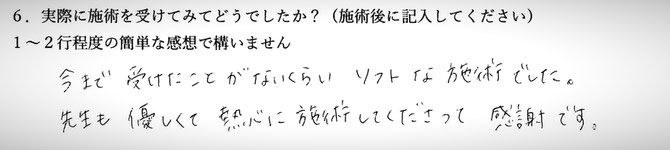 6．実際に施術を受けてみてどうでしたか？（施術後に記入してください）
1～2行程度の簡単な感想で構いません
今まで受けたことがないくらいソフトな施術でした。
先生も優しくて熱心に施術してくださって感謝です。